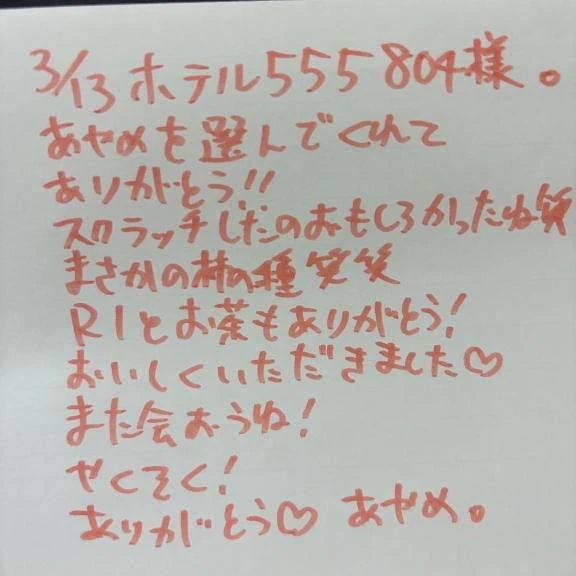 3/13 ホテル555 804様。
あやめを選んでくれて
ありがとう!!
スクラッチしたのおもしろかったね笑
まさかの柿の種笑笑
R1とお茶もありがとう!
おいしくいただきました♡
また会おうね!
やくそく!
ありがとう♡ あやめ。